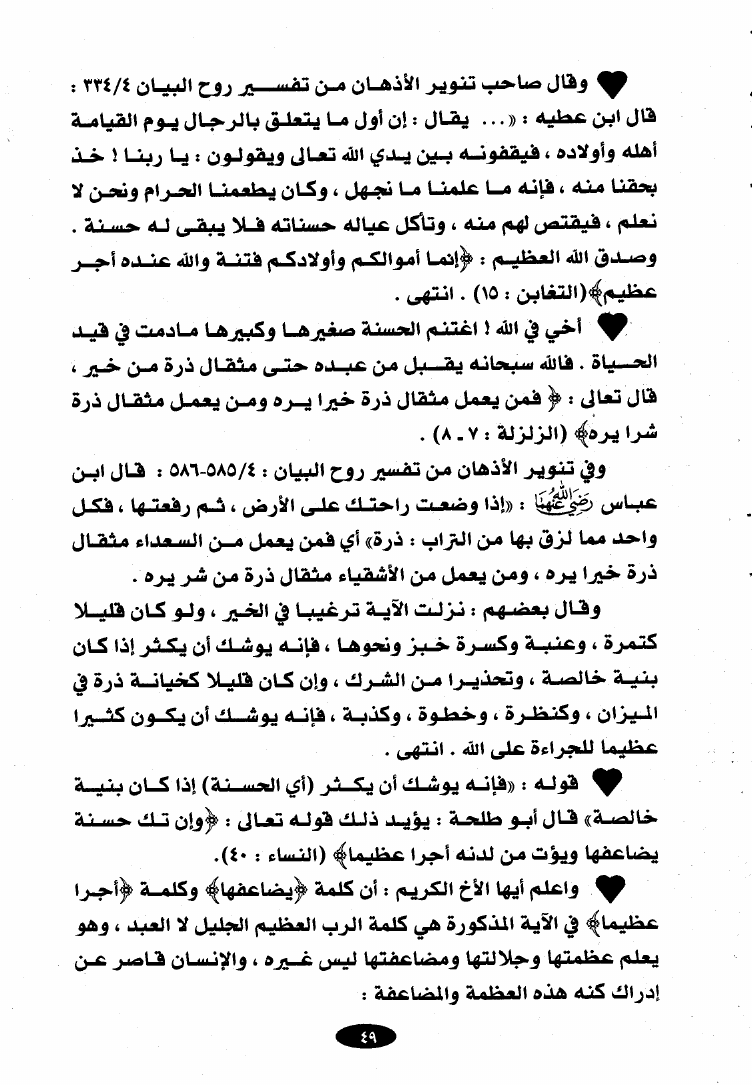 وقال صاحب تنوير الأذهان من تفسير روح البيان ٣٣٤/٤ :
قال ابن عطيه : «... يقال : إن أول ما يتعلق بالرجال يوم القيامة
أهله وأولاده ، فيقفونه بين يدي الله تعالى ويقولون : يا ربنا ! خذ
بحقنا منه ، فإنه ما علمنا ما نجهل ، وكان يطعمنا الحرام ونحن لا
نعلم ، فيقتص لهم منه ، وتأكل عياله حسناته فلا يبقى له حسنة .
وصدق الله العظيم : ﴿إنما أموالكم وأولادكم فتنة والله عنده أجر
عظيم﴾(التغابن : ١٥) . انتهى .
أخي في الله ! اغتنم الحسنة صغيرها وكبيرها مادمت في قيد
الحياة . فالله سبحانه يقبل من عبده حتى مثقال ذرة من خير ،
قال تعالى : ﴿ فمن يعمل مثقال ذرة خيرا يره ومن يعمل مثقال ذرة
شرا يره﴾ (الزلزلة : ٧ ـ ٨) .
وفي تنوير الأذهان من تفسير روح البيان : ٥٨٥/٤-٥٨٦ : قال ابن
عباس رضي الله عنهما : «إذا وضعت راحتك على الأرض ، ثم رفعتها ، فكل
واحد مما لزق بها من التراب : ذرة» أي فمن يعمل من السعداء مثقال
ذرة خيرا يره ، ومن يعمل من الأشقياء مثقال ذرة من شر يره .
وقال بعضهم : نزلت الآية ترغيبا في الخير ، ولو كان قليلا
كتمرة ، وعنبة وكسرة خبز ونحوها ، فإنه يوشك أن يكثر إذا كان
بنية خالصة ، وتحذيرا من الشرك ، وإن كان قليلا كخيانة ذرة في
الميزان ، وكنظرة ، وخطوة ، وكذبة ، فإنه يوشك أن يكون كثيرا
عظيما للجراءة على الله . انتهى .
قوله : «فإنه يوشك أن يكثر (أي الحسنة) إذا كان بنية
خالصة» قال أبو طلحة : يؤيد ذلك قوله تعالى : ﴿وإن تك حسنة
يضاعفها ويؤت من لدنه أجرا عظيما﴾ (النساء : ٤٠).
واعلم أيها الأخ الكريم : أن كلمة ﴿يضاعفها﴾ وكلمة ﴿أجرا
عظيما﴾ في الآية المذكورة هي كلمة الرب العظيم الجليل لا العبد ، وهو
يعلم عظمتها وجلالتها ومضاعفتها ليس غيره ، والإنسان قاصر عن
إدراك كنه هذه العظمة والمضاعفة :
٤٩